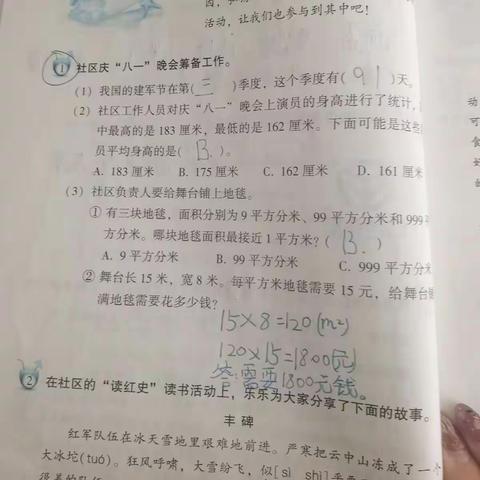 活动，让我们也参与到其中吧！
1 社区庆“八一”晚会筹备工作。
(1) 我国的建军节在第( 三 )季度，这个季度有( 91 )天。
(2) 社区工作人员对庆“八一”晚会上演员的身高进行了统计，
中最高的是 183 厘米，最低的是 162 厘米。下面可能是这些
员平均身高的是( B. )。
A. 183 厘米 B. 175 厘米 C. 162 厘米 D. 161 厘米
(3) 社区负责人要给舞台铺上地毯。
① 有三块地毯，面积分别为 9 平方分米、99 平方分米和 999 平
方分米。哪块地毯面积最接近 1 平方米？( B. )
A. 9 平方分米 B. 99 平方分米 C. 999 平方分米
② 舞台长 15 米，宽 8 米。每平方米地毯需要 15 元，给舞台
满地毯需要花多少钱？
15×8=120(m²)
120×15=1800(元)
答:需要1800元钱。
2 在社区的“读红史”读书活动上，乐乐为大家分享了下面的故事。
丰 碑
红军队伍在冰天雪地里艰难地前进。严寒把云中山冻成了一个
大冰坨(tuó)。狂风呼啸，大雪纷飞，似[sì shì]乎要